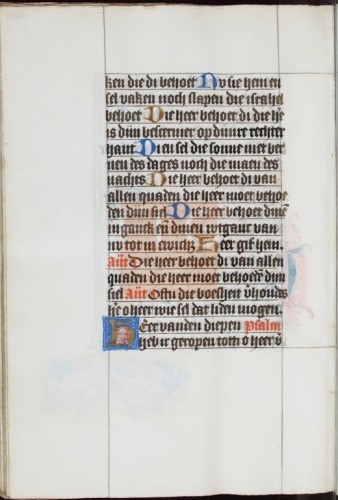 ken die di behoet Nv sie hem en
sel vaken noch slapen die israhel
behoet Die heer behoet di die he
is dijn bescermer op dinre rechter
hant Di en sel die sonne niet ver
nen des dages noch die maen des
nachts Die heer behoet di van
allen quaden die heer moet behoe
den dijn siel Die heer behoet dinē
in ganck eñ dinen wtganc van
nv tot in ewich Heer gif hem.
Añt Die heer behoet di van allen
quaden die heer moet behoedē dijn
siel Añt Oftu die boesheit v̄houdes
hē o heer wie sel dat liden mogen.
Heer vanden diepen Psalm
heb ic geropen totti o heer v̄